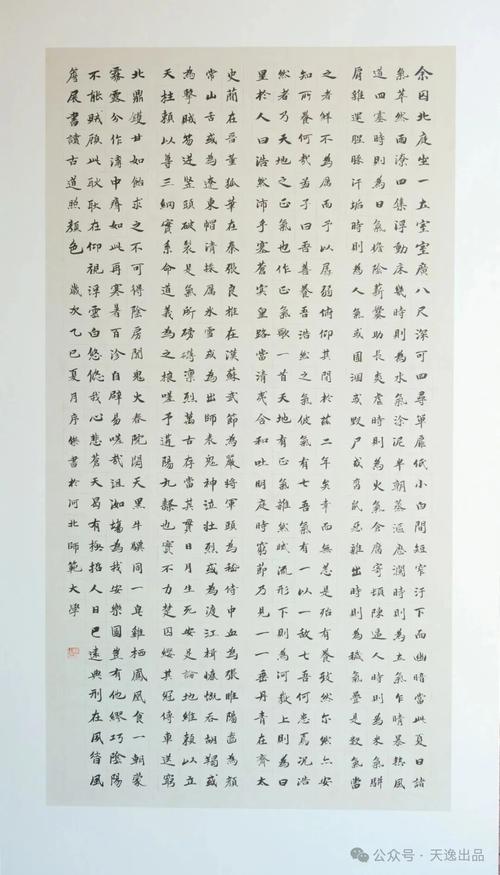 余因北庭坐一土室室廣八尺深可四尋單扉低小白間短窄汙下而幽暗當此夏日諸
氣萃然雨潦四集浮動床幾時則為水氣塗泥半朝蒸漚歷瀾時則為土氣乍晴暴熱風
道四塞時則為日氣檐陰薪爨助長炎虐時則為火氣倉腐寄頓陳逼人時則為米氣駢
肩雜遝腥臊汗垢時則為人氣或圊溷或毀尸或腐鼠惡雜出時則為穢氣疊是數氣當
之者鮮不為厲而予以孱弱俯仰其間於茲二年矣幸而無恙是殆有養致然尔然亦安
知所養何哉孟子曰吾善養吾浩然之氣彼氣有七吾氣有一以一敵七吾何患焉況浩
然者乃天地之正氣也作正氣歌一首天地有正氣雜然賦流形下則為河嶽上則為日
星於人曰浩然沛乎塞蒼冥皇路當清夷含和吐明庭時窮節乃見一一垂丹青在齊太
史簡在晉董狐筆在秦張良椎在漢蘇武節為嚴將軍頭為嵇侍中血為張睢陽齒為顏
常山舌或為遼東帽清操厲冰雪或為出師表鬼神泣壯烈或為渡江楫慷慨吞胡羯或
為擊賊笏逆豎頭破裂是氣所磅礴凜烈萬古存當其貫日月生死安足論地維賴以立
天柱賴以尊三綱實系命道義為之根嗟予遘陽九隸也實不力楚囚纓其冠傳車送窮
北鼎鑊甘如飴求之不可得陰房闃鬼火春院閟天黑牛驥同一皂雞栖鳳凰食一朝蒙
霧露分作溝中瘠如此再寒暑百沴自辟易嗟哉沮洳場為我安樂國豈有他繆巧陰陽
不能賊顧此耿耿在仰視浮雲白悠悠我心悲蒼天曷有極哲人日已遠典刑在夙昔風
簷展書讀古道照顏色 歲次乙巳夏月序傑書於河北師範大學
公众号·天逸出品